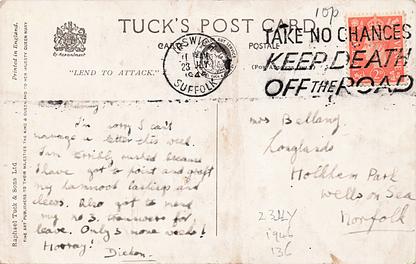 10p
TUCK'S POST CARD
CARTE POSTALE
"LEND TO ATTACK."
(Post
Printed in England.
Raphael Tuck & Sons Ltd
FINE ART PUBLISHERS TO THEIR MAJESTIES THE KING & QUEEN AND TO HER MAJESTY QUEEN MARY
IPSWICH
23 JLY
1946
SUFFOLK
TAKE NO CHANCES
KEEP DEATH
OFF THE ROAD
I'm sorry I can't
manage a letter this week.
I'm terribly rushed because
I have got to paint and graft
my
Also got to mend
my no 3. trousers for
leave. Only 3 more weeks!
Hooray! Dickon.
Mrs Bellamy.
Longlands
Holkham Park
Wells on Sea
Norfolk
23 JLY
1946
136